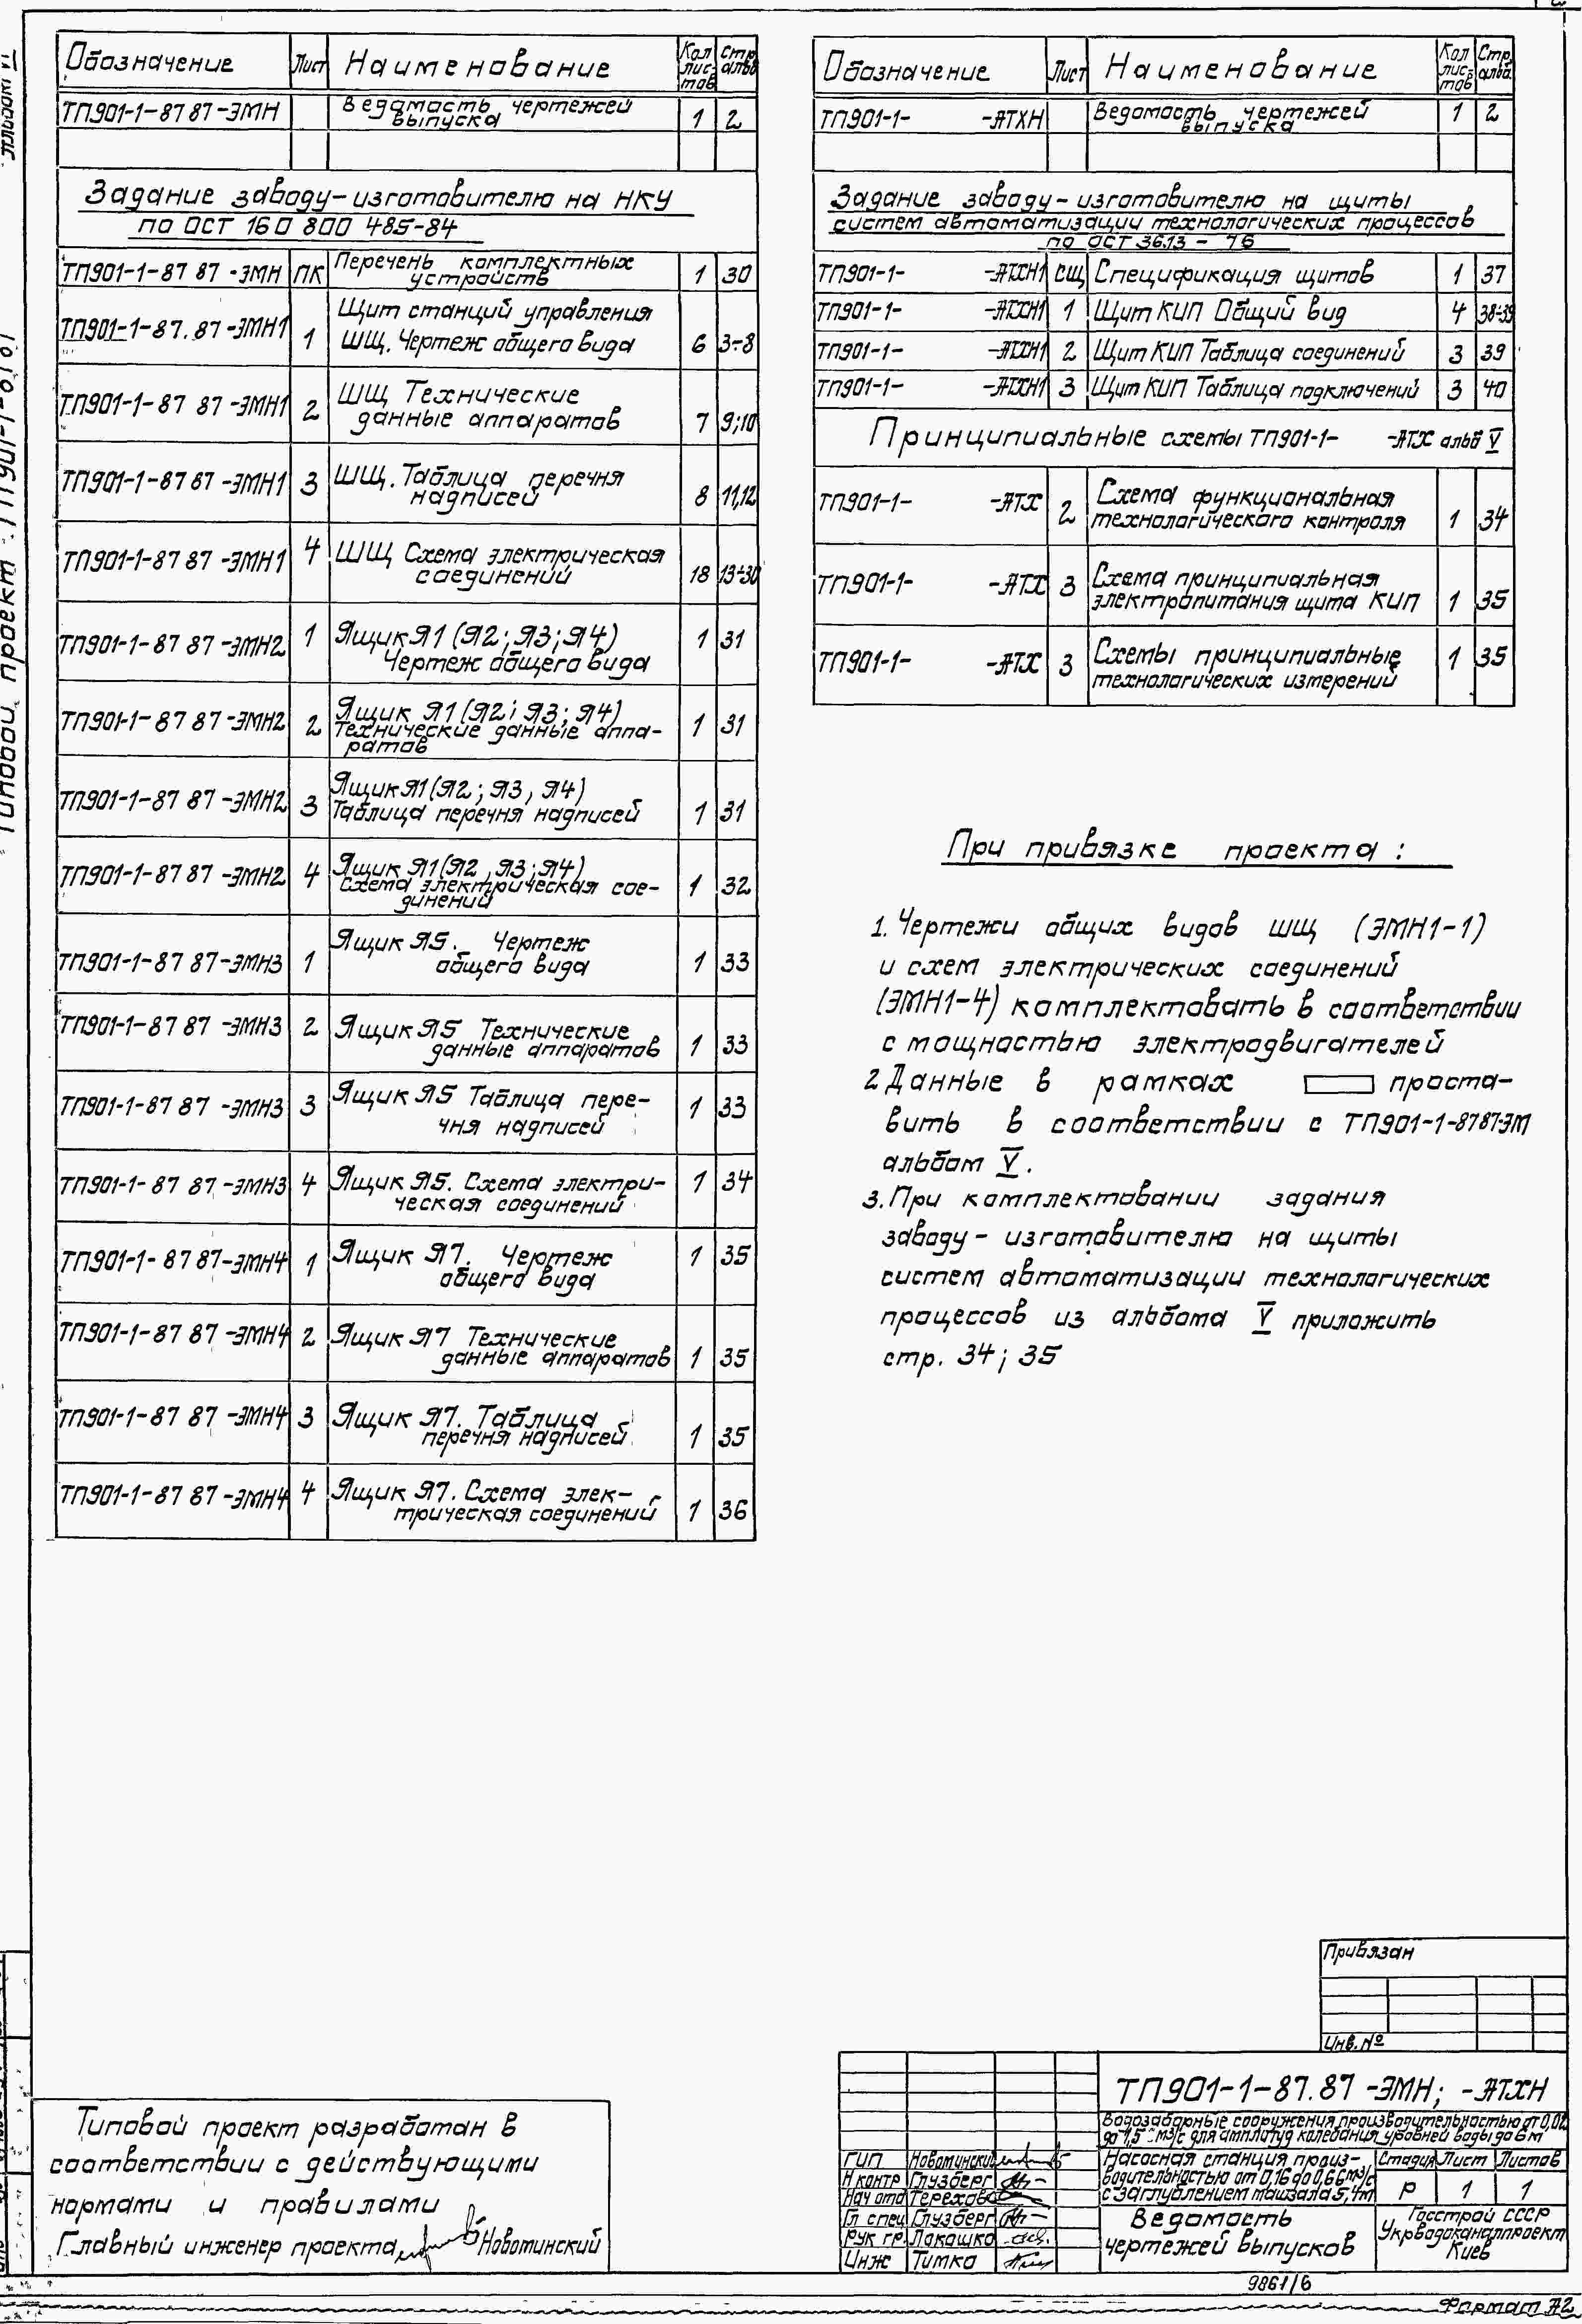 Обозначение Лист Наименование Кол листов Стр альб
ТП901-1-87 87-ЭМН Ведомость чертежей
выпуска 1 2
Задание заводу-изготовителю на НКУ
по ОСТ 160 800 485-84
ТП901-1-87 87-ЭМН ПК Перечень комплектных
устройств 1 30
ТП901-1-87.87-ЭМН1 1 Щит станций управления
ШЩ. Чертеж общего вида 6 3÷8
ТП901-1-87 87-ЭМН1 2 ШЩ Технические
данные аппаратов 7 9;10
ТП901-1-87 87-ЭМН1 3 ШЩ. Таблица перечня
надписей 8 11,12
ТП901-1-87 87-ЭМН1 4 ШЩ Схема электрическая
соединений 18 13÷30
ТП901-1-87 87-ЭМН2 1 Ящик Я1 (Я2; Я3; Я4)
Чертеж общего вида 1 31
ТП901-1-87 87-ЭМН2 2 Ящик Я1 (Я2; Я3; Я4)
Технические данные аппа-
ратов 1 31
ТП901-1-87 87-ЭМН2 3 Ящик Я1 (Я2; Я3, Я4)
Таблица перечня надписей 1 31
ТП901-1-87 87-ЭМН2 4 Ящик Я1 (Я2, Я3; Я4)
Схема электрическая сое-
динений 1 32
ТП901-1-87 87-ЭМН3 1 Ящик Я5. Чертеж
общего вида 1 33
ТП901-1-87 87-ЭМН3 2 Ящик Я5 Технические
данные аппаратов 1 33
ТП901-1-87 87-ЭМН3 3 Ящик Я5 Таблица пере-
чня надписей 1 33
ТП901-1-87 87-ЭМН3 4 Ящик Я5. Схема электри-
ческая соединений 1 34
ТП901-1-87 87-ЭМН4 1 Ящик Я7. Чертеж
общего вида 1 35
ТП901-1-87 87-ЭМН4 2 Ящик Я7 Технические
данные аппаратов 1 35
ТП901-1-87 87-ЭМН4 3 Ящик Я7. Таблица
перечня надписей 1 35
ТП901-1-87 87-ЭМН4 4 Ящик Я7. Схема элек-
трическая соединений 1 36
Обозначение Лист Наименование Кол листов Стр. альб.
ТП901-1- -АТХН Ведомость чертежей
выпуска 1 2
Задание заводу-изготовителю на щиты
систем автоматизации технологических процессов
по ОСТ 36.13-76
ТП901-1- -АТХН1 СЩ Спецификация щитов 1 37
ТП901-1- -АТХН1 1 Щит КИП Общий вид 4 38÷39
ТП901-1- -АТХН1 2 Щит КИП Таблица соединений 3 39
ТП901-1- -АТХН1 3 Щит КИП Таблица подключений 3 40
Принципиальные схемы ТП901-1- -АТХ альб V
ТП901-1- -АТХ 2 Схема функциональная
технологического контроля 1 34
ТП901-1- -АТХ 3 Схема принципиальная
электропитания щита КИП 1 35
ТП901-1- -АТХ 3 Схемы принципиальные
технологических измерений 1 35
При привязке проекта:
1. Чертежи общих видов ШЩ (ЭМН1-1)
и схем электрических соединений
(ЭМН1-4) комплектовать в соответствии
с мощностью электродвигателей
2 Данные в рамках проста-
вить в соответствии с ТП901-1-87 87-ЭМ
альбом V.
3. При комплектовании задания
заводу-изготовителю на щиты
систем автоматизации технологических
процессов из альбома V приложить
стр. 34; 35
Типовой проект
Привязан
Инв. №
ТП901-1-87.87-ЭМН; -АТХН
Водозаборные сооружения производительностью от 0,02
до 1,5 м3/с для амплитуд колебания уровней воды до 6 м
Насосная станция произ-
водительностью от 0,16 до 0,66 м3/с
с заглублением машзала 5,4м
Стадия Лист Листов
Р 1 1
Ведомость
чертежей выпусков
Госстрой СССР
Укрводоканалпроект
Киев
ГИП Новоминский
Н контр Глузберг
Нач отд Терехов
Гл спец Глузберг
Рук гр. Лакашко
Инж Тимко
Типовой проект разработан в
соответствии с действующими
нормами и правилами
Главный инженер проекта Новоминский
9861/6
Формат А2